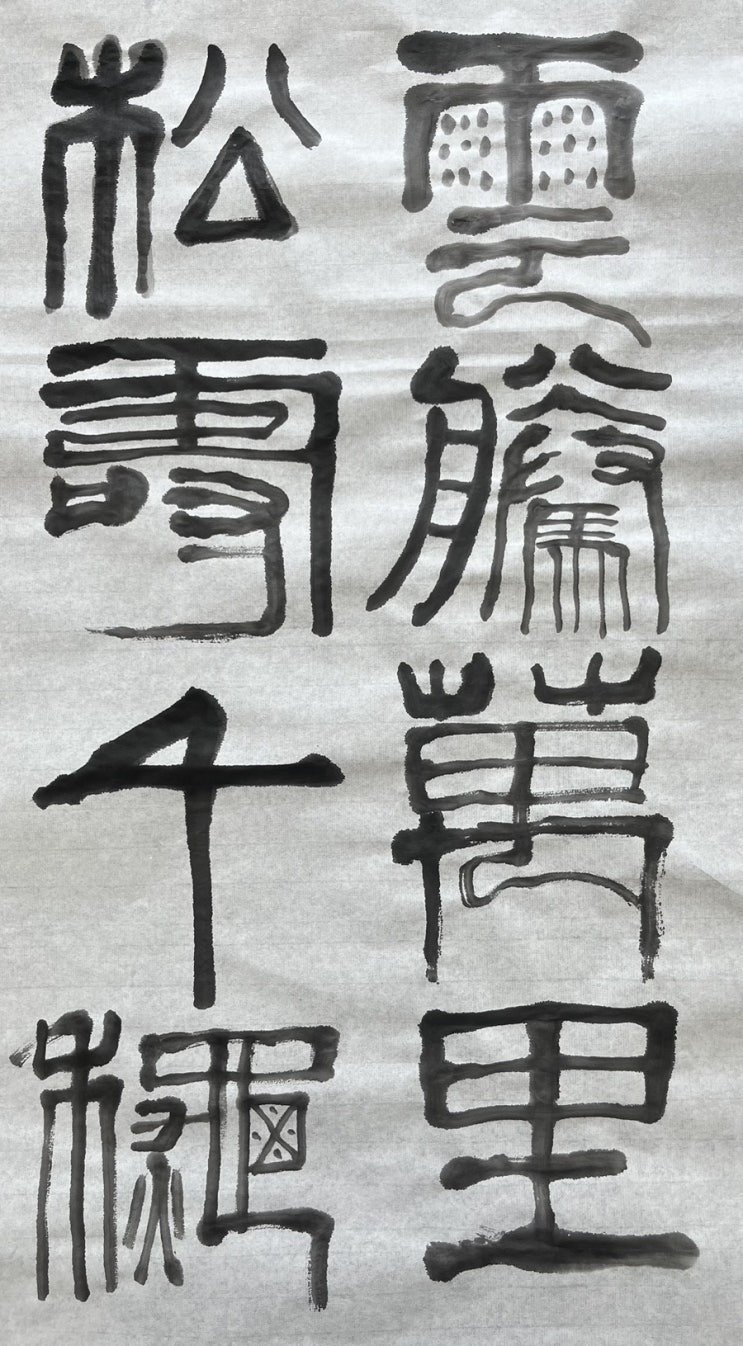 雲騰萬里
松壽千穐